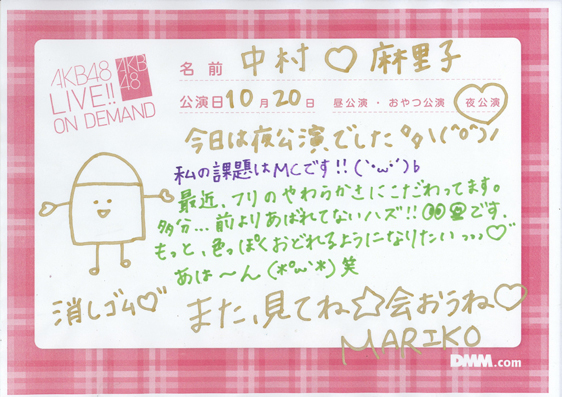 AKB48
LIVE!!
ON DEMAND
AKB
48
名前 中村♡麻里子
公演日10月20日 昼公演・おやつ公演 夜公演
今日は夜公演でした°ʖ\(^o^)ノ
私の課題はMCです!!(`・ω・´)b
最近、フリのやわらかさにこだわってます。
多分…前よりあばれてないハズ!!です、
もっと、色っぽくおどれるようになりたいっっっ♡
あは〜ん(*°ω°*)笑
消しゴム♡
また、見てね☆会おうね♡
MARIKO
DMM.com